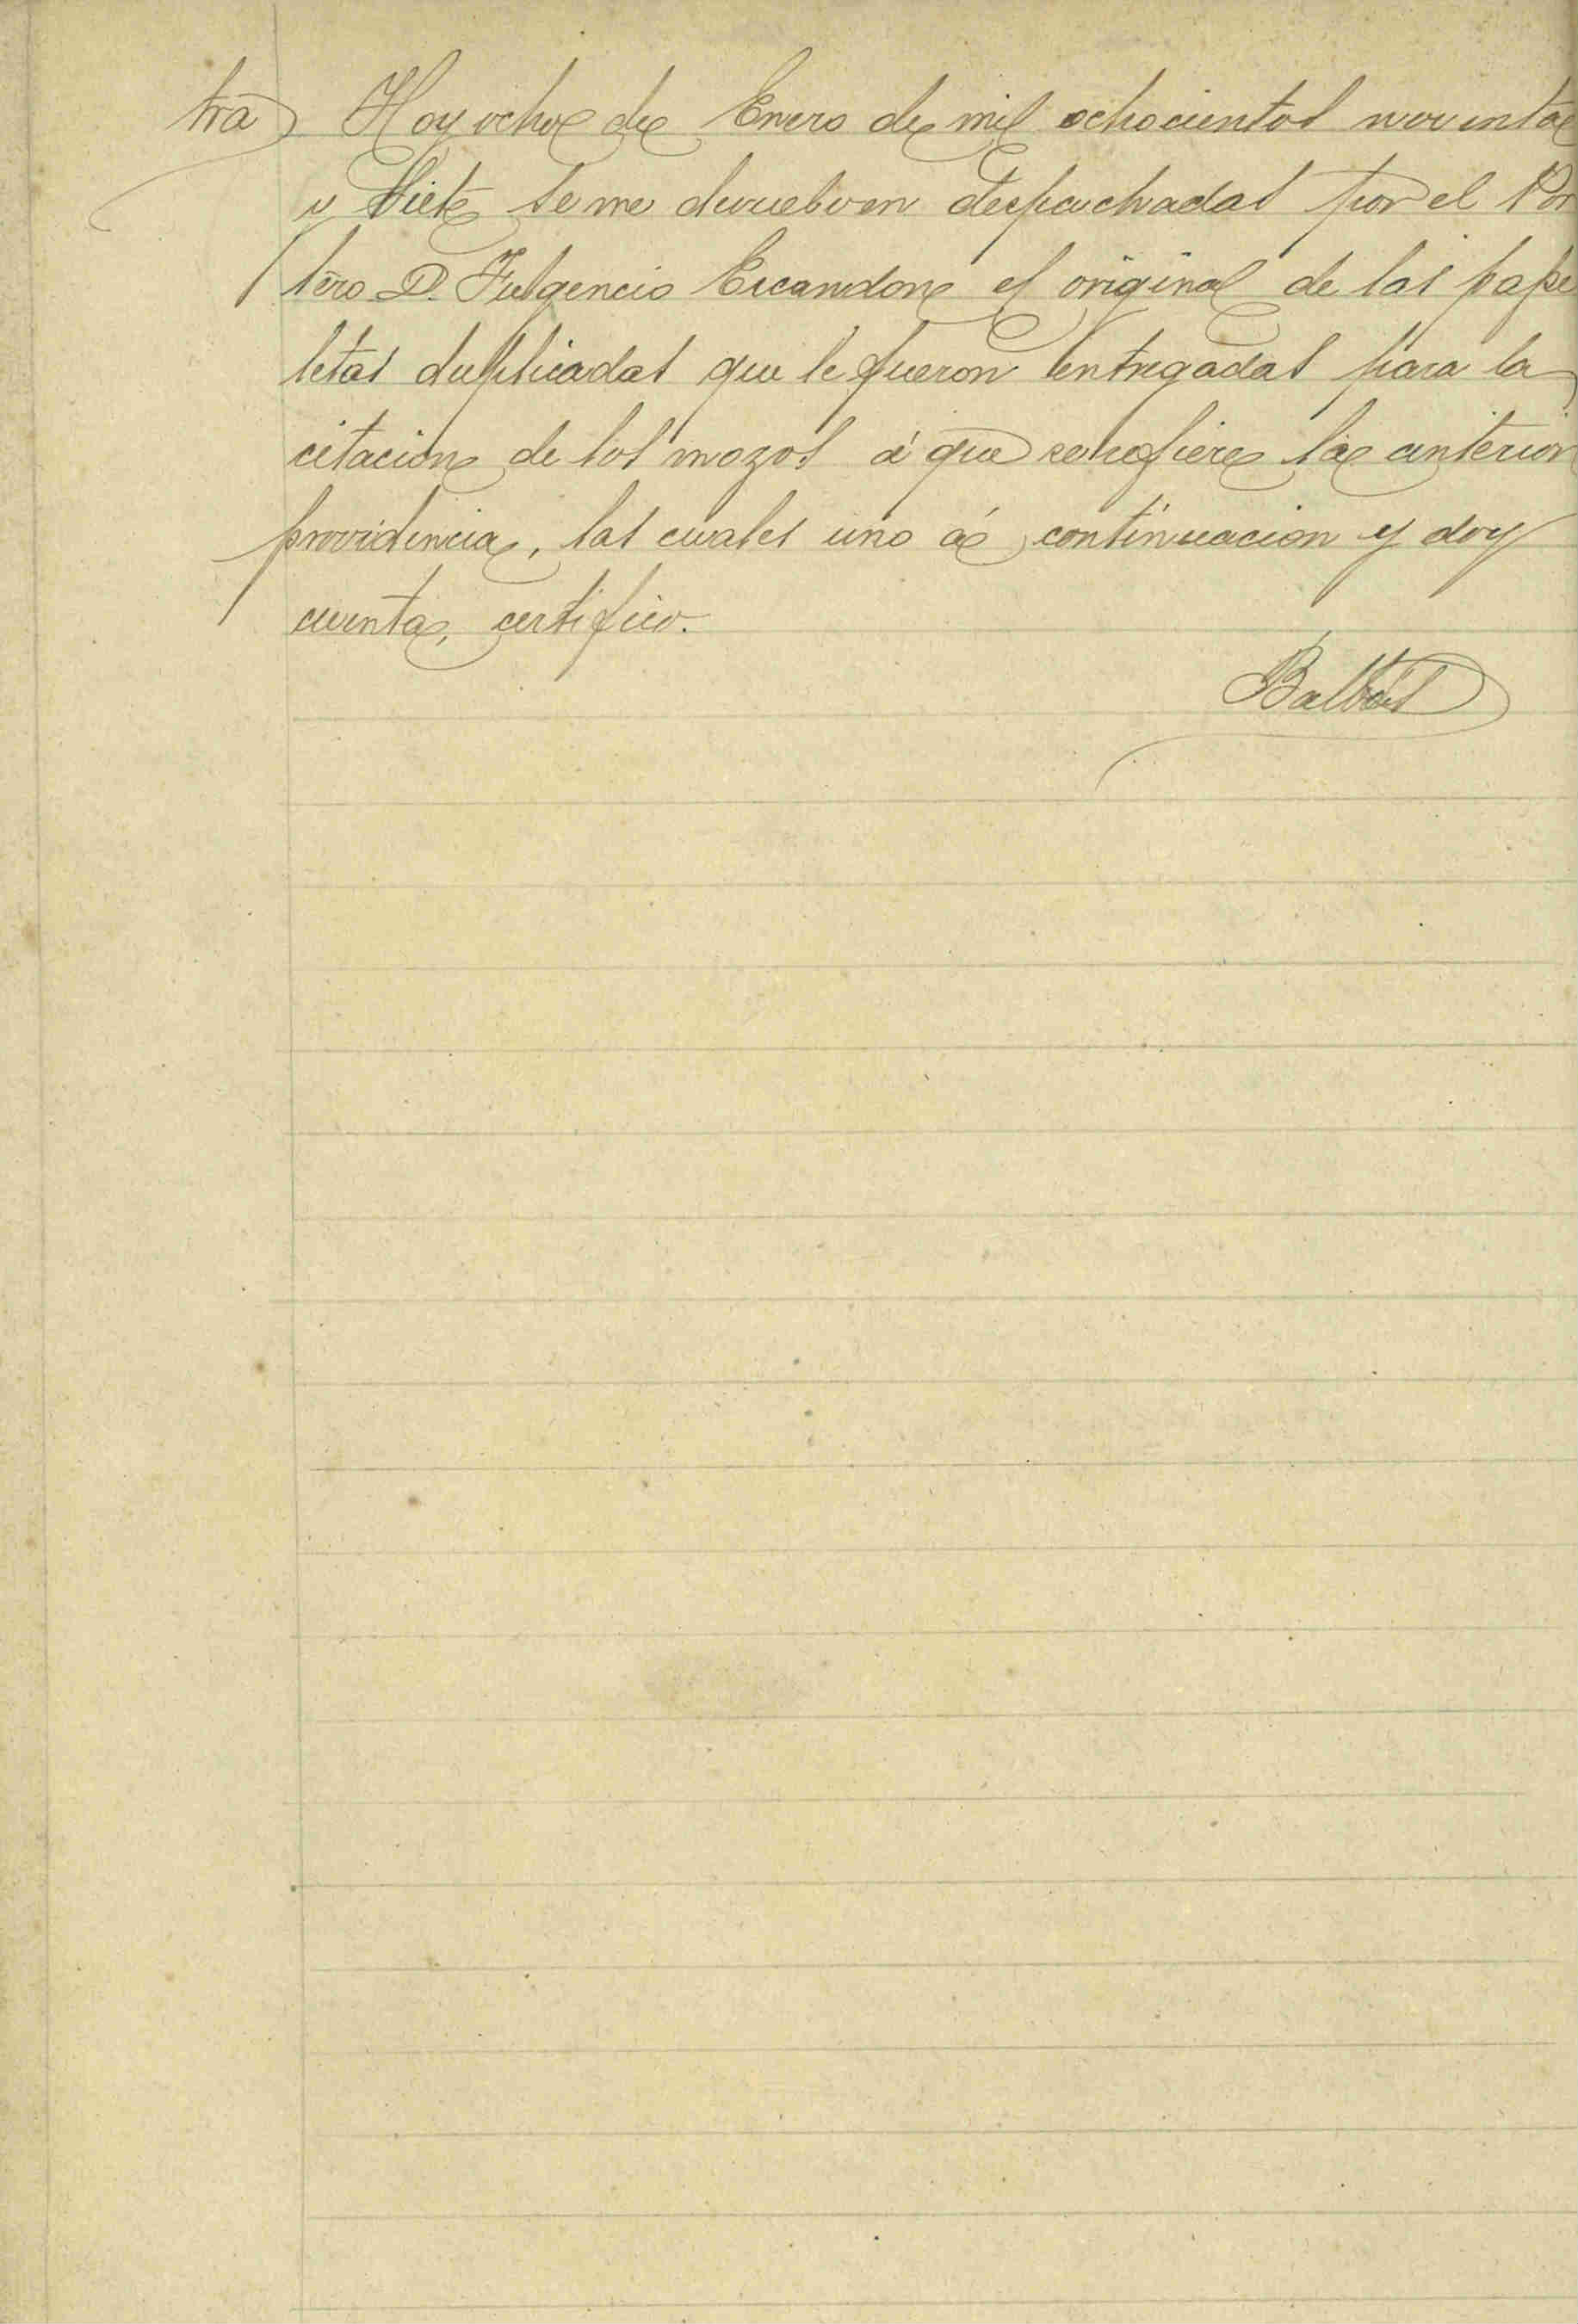 tra Hoy ocho de Enero de mil ochocientos noventa
y Siete se me devuelven despachadas por el Por
tero D. Fulgencio Escandon el original de las pape
letas duplicadas que le fueron entregadas para la
citacion de los mozos á que se refiere la anterior
providencia, las cuales uno á continuacion y doy
cuenta, certifico.
Balbás